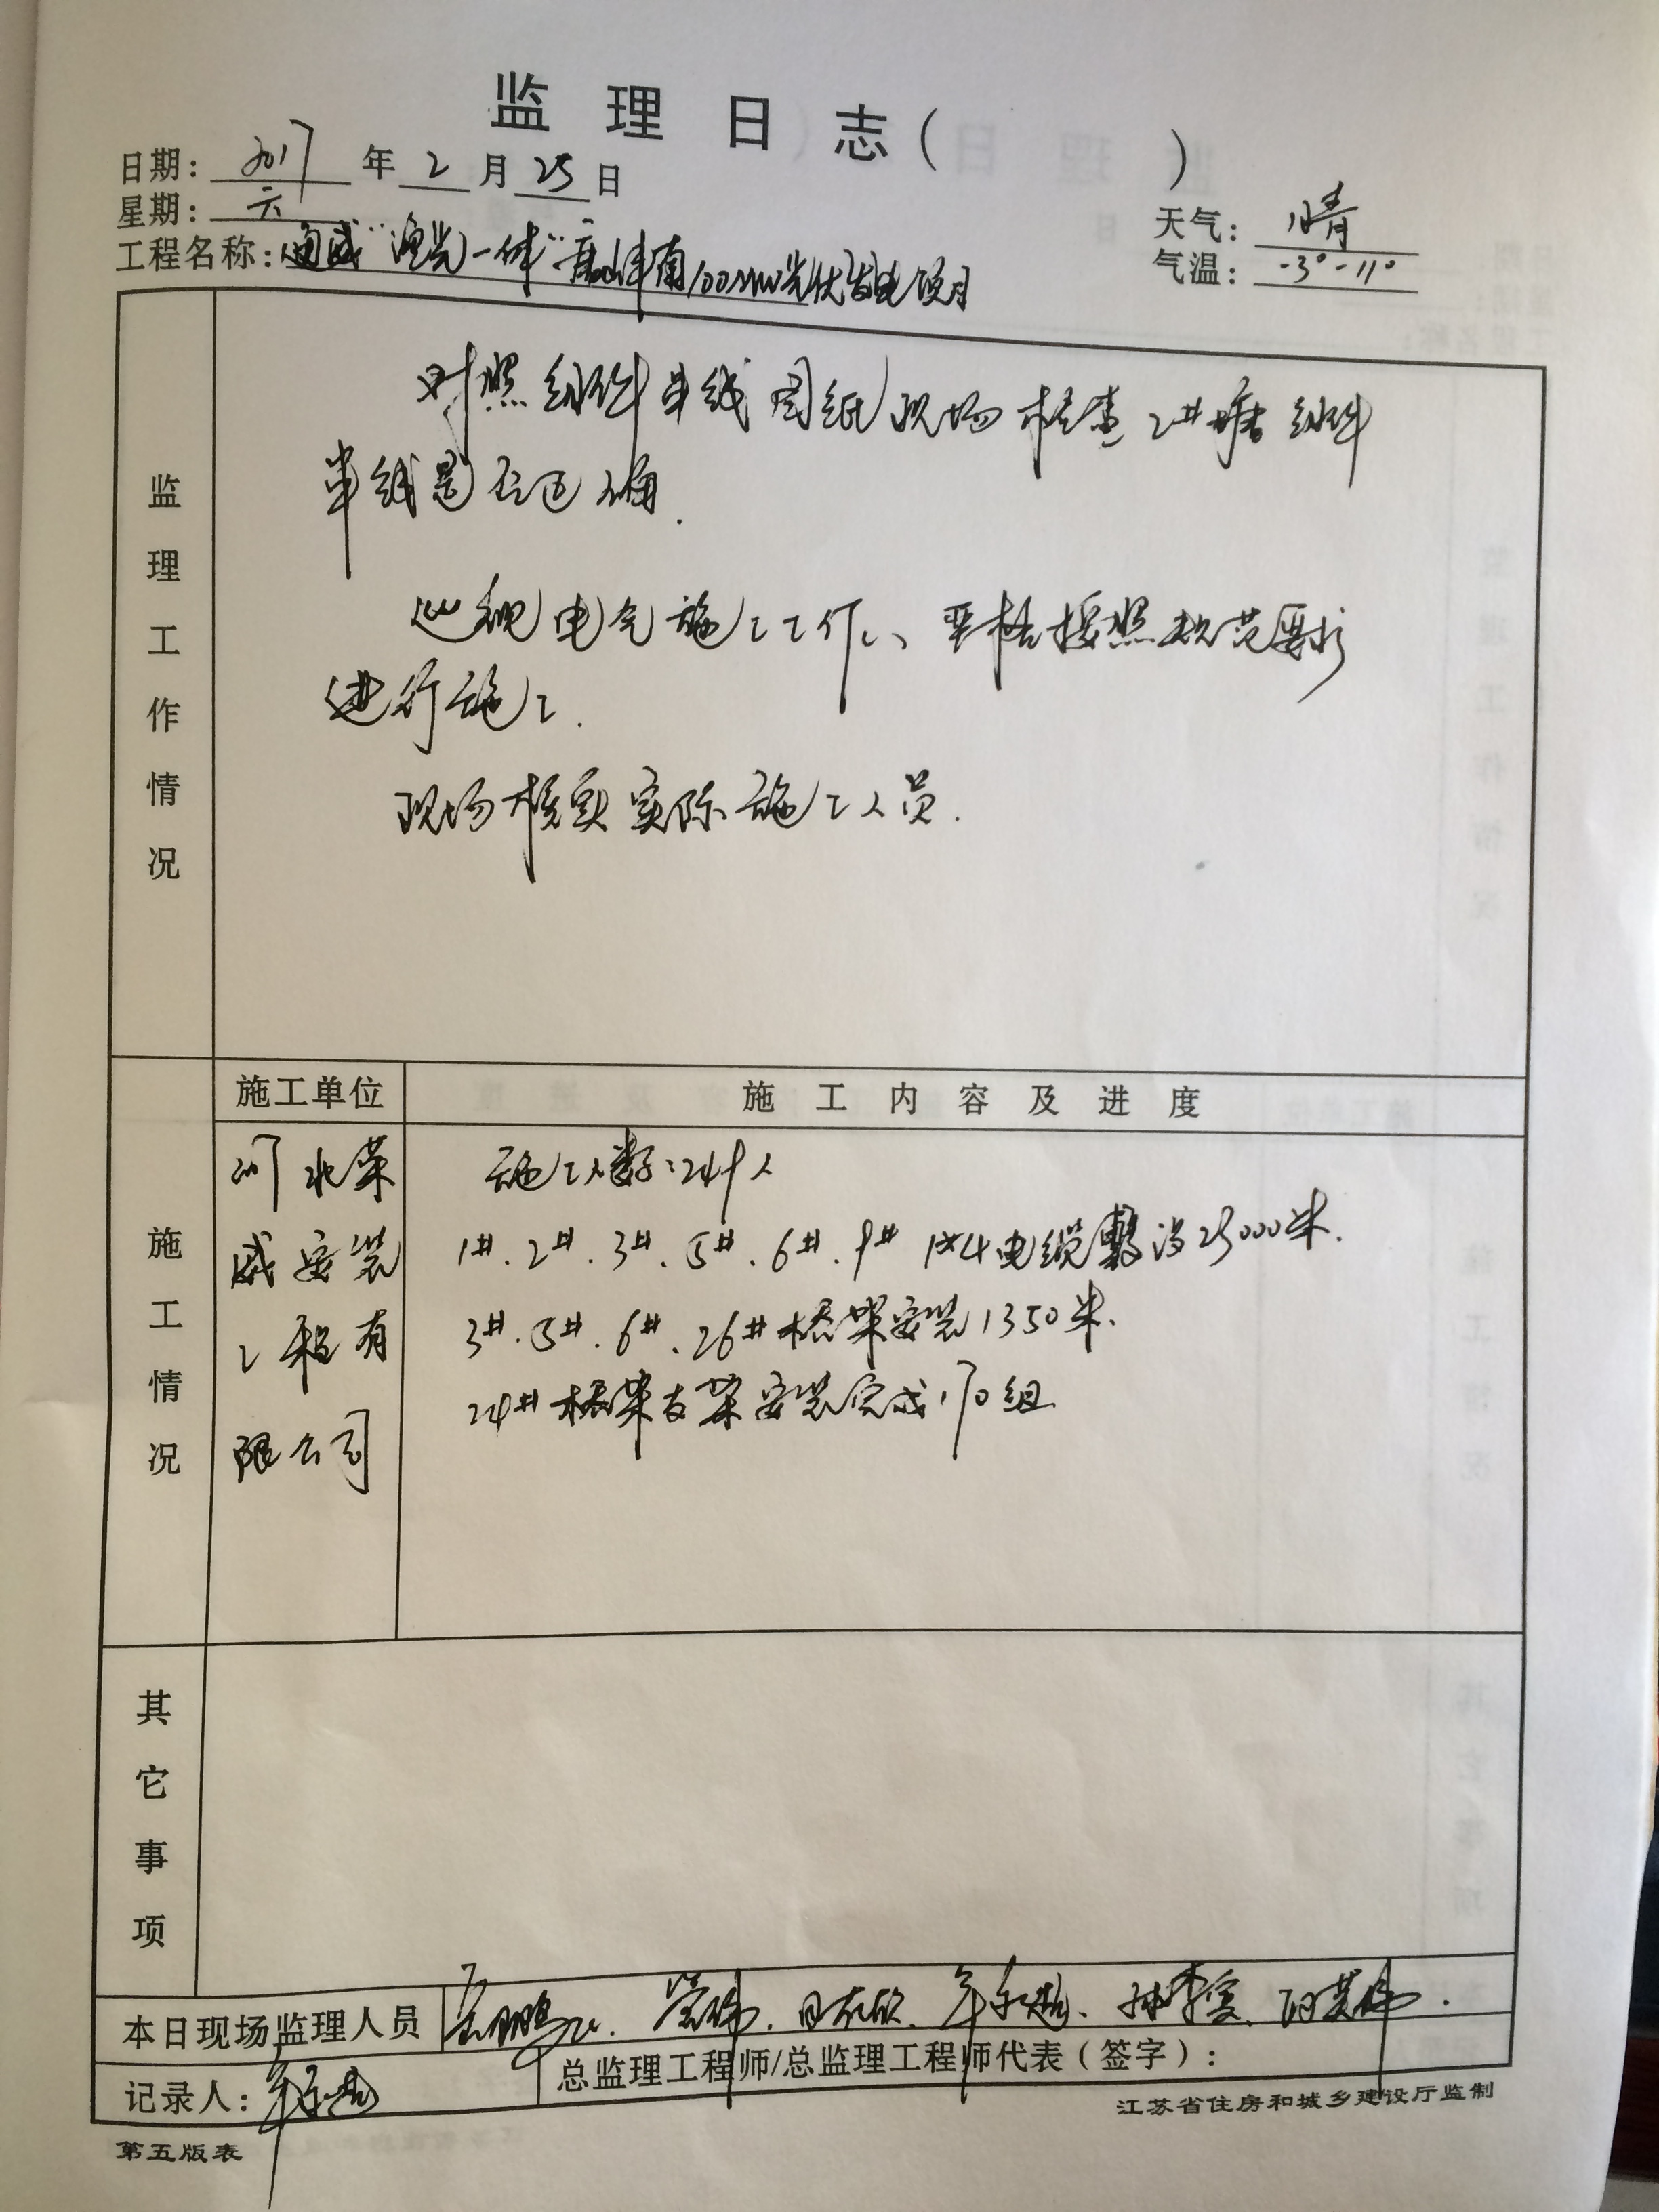 监理日志（ ）
日期：2017年2月25日
星期：六
天气：晴
工程名称：通威“渔光一体”唐山丰南100MW光伏发电项目
气温：-3°-11°
监理工作情况
对照组件串线图纸现场检查2#塘组件
串线是否正确.
巡视电气施工工作、严格按照规范要求
进行施工.
现场核实实际施工人员.
施工单位
施工内容及进度
施工情况
河北荣
威安装
工程有
限公司
施工人数：249人
1#.2#.3#.5#.6#.9# 1*4电缆敷设25000米.
3#.5#.6#.26#桥架安装1350米.
24#桥架支架安装完成170组
其它事项
本日现场监理人员
记录人：
总监理工程师/总监理工程师代表（签字）：
江苏省住房和城乡建设厅监制
第五版表